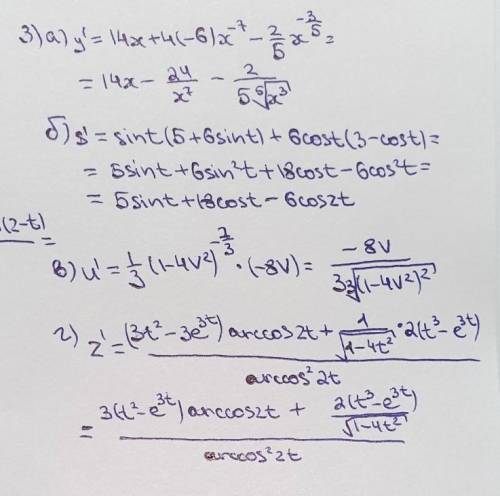 3) а) y' = 14x + 4(-6)x^{-7} - \frac{2}{5} x^{-\frac{3}{5}} =
= 14x - \frac{24}{x^7} - \frac{2}{5\sqrt[5]{x^3}}
б) s' = sint(5+6sint) + 6cost(3-cost) =
= 5sint + 6sin²t + 18cost - 6cos²t =
= 5sint + 18cost - 6cos2t
(2-t) =
в) u' = \frac{1}{3}(1-4v²)^{-\frac{2}{3}} · (-8v) = \frac{-8v}{3\sqrt[3]{(1-4v²)²}}
г) z' = \frac{(3t²-3e^{3t}) arccos2t + \frac{1}{\sqrt{1-4t²}} · 2(t³-e^{3t})}{arccos²2t}
= \frac{3(t²-e^{3t}) arccos2t + \frac{2(t³-e^{3t})}{\sqrt{1-4t²}}}{arccos²2t}